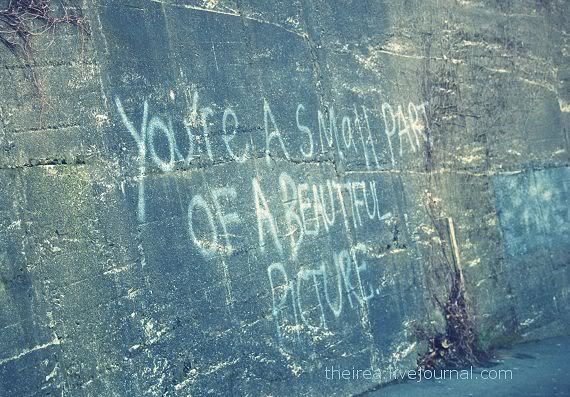 You're A SMall PART
OF A BEAUTIFUL
PICTURE.
theirea.livejournal.com